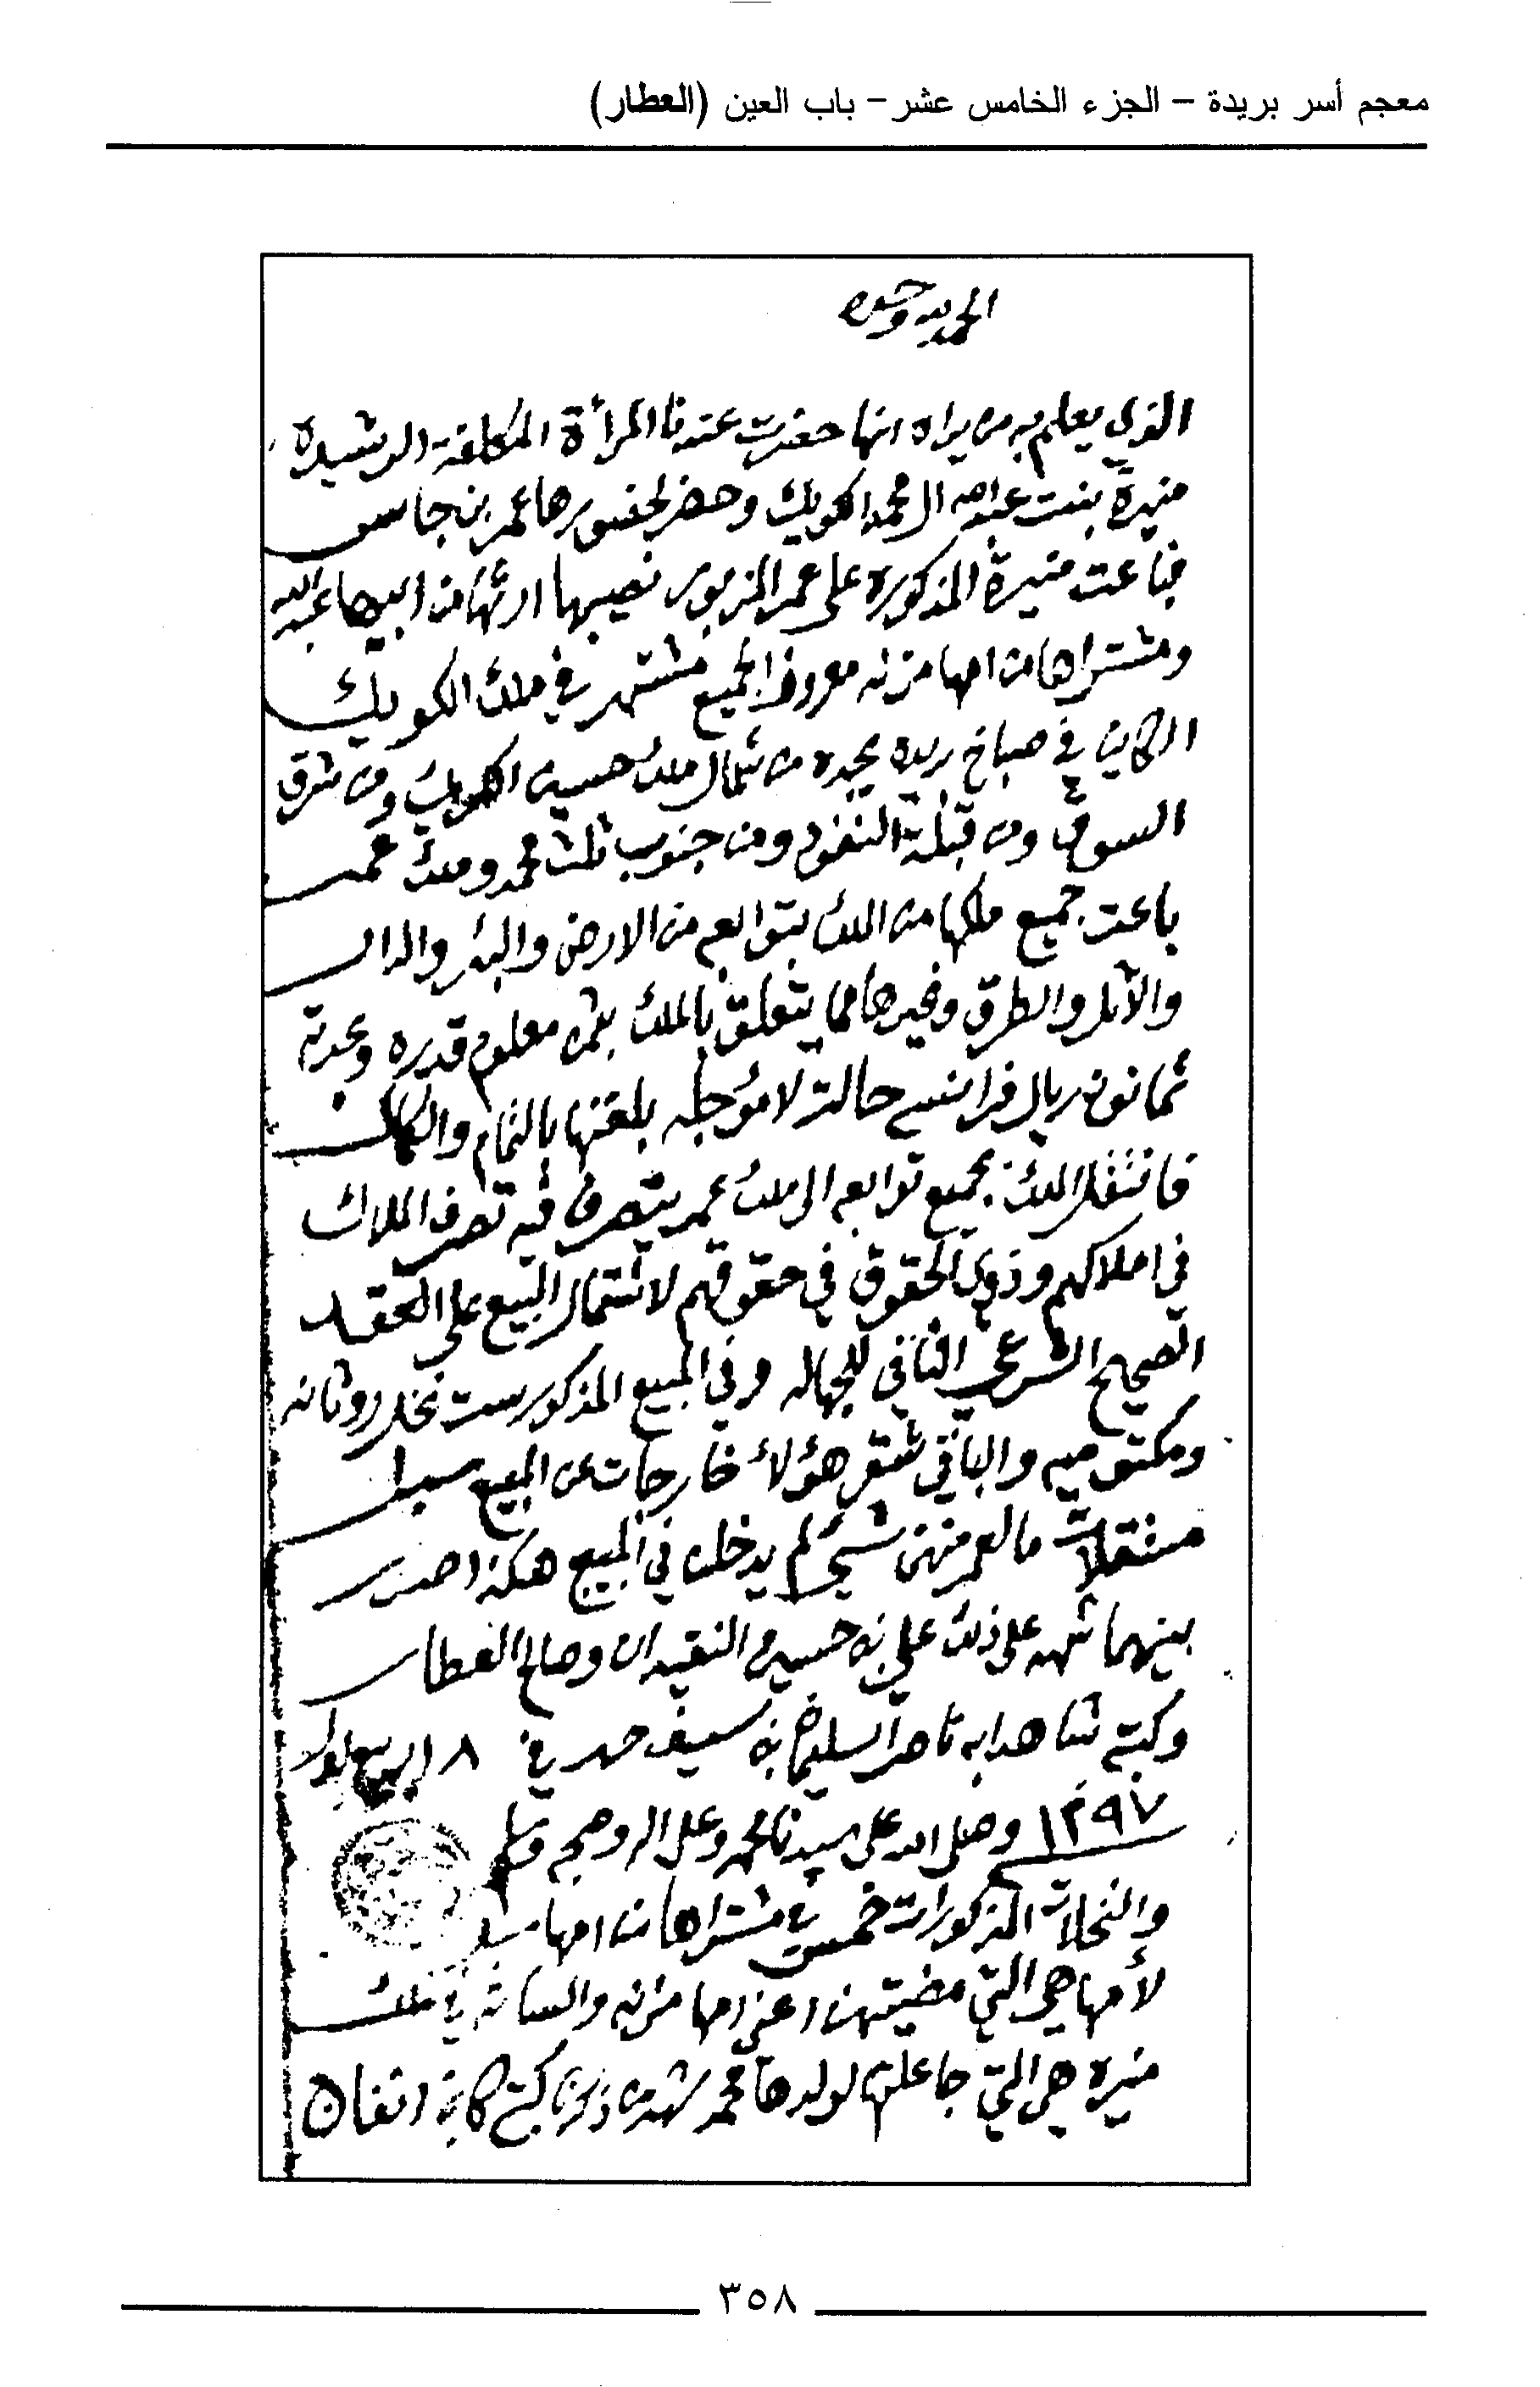 معجم أسر بريدة – الجزء الخامس عشر – باب العين (العطار)
الحمد لله وحده
الذي يعلم به من يراه انها حضرت عندنا المرأة المكلفة الرشيده
منيرة بنت عبدالله ال محمد الكويك وحضر لحضورها عمر بن جاسر
فباعت منيرة المذكوره على عمر المزبور نصيبها ارثها من ابيها عبدالله
ومشتراها من امها مزنه معروف الجميع مشتهر في ملك الكويك
الكاين في صباخ بريده يحده من شمال ملك حسين الكويك ومن شرق
السوق ومن قبلة النفود ومن جنوب ثلث محمد وملك عمر
باعت جميع ملكها من الملك بتوابعه من الارض والبئر والدار
والاثل والطرق وغيرها مما يتعلق بالملك بثمن معلوم قدره وعدته
ثمانون ريال فرانسي حالة لا مؤجله بلغتها بالتمام والكمال
فانتقل الملك بجميع توابعه الى ملك عمر يتصرف فيه تصرف الملاك
في املاكهم وذوي الحقوق في حقوقهم لاشتمال البيع على العقد
الصحيح الشرعي النافي للجهاله وفي المبيع المذكور ست نخل روثانه
ومكتوميه والباقي شقر هؤلاء خارجات عن المبيع سبل
مستقلات ما لعمر منهن شيء لم يدخلن في المبيع هكذا صدر
بينهما شهد على ذلك علي بن حسين النقيدان وصالح العطار
وكتبه شاهدا به ناصر السليمان بن سيف حرر في ٨ ربيع اول
١٢٩٧ وصلى الله على سيدنا محمد وعلى اله وصحبه وسلم
والنخلات المذكورات خمس في مشتراها من امها سبل
لأمها هي التي مضيتهن اعني امها مزنه والسادسة في ملك
منيره هي التي جاعلتها لولدها محمد شهد من ذكرنا كتبه كاتبه